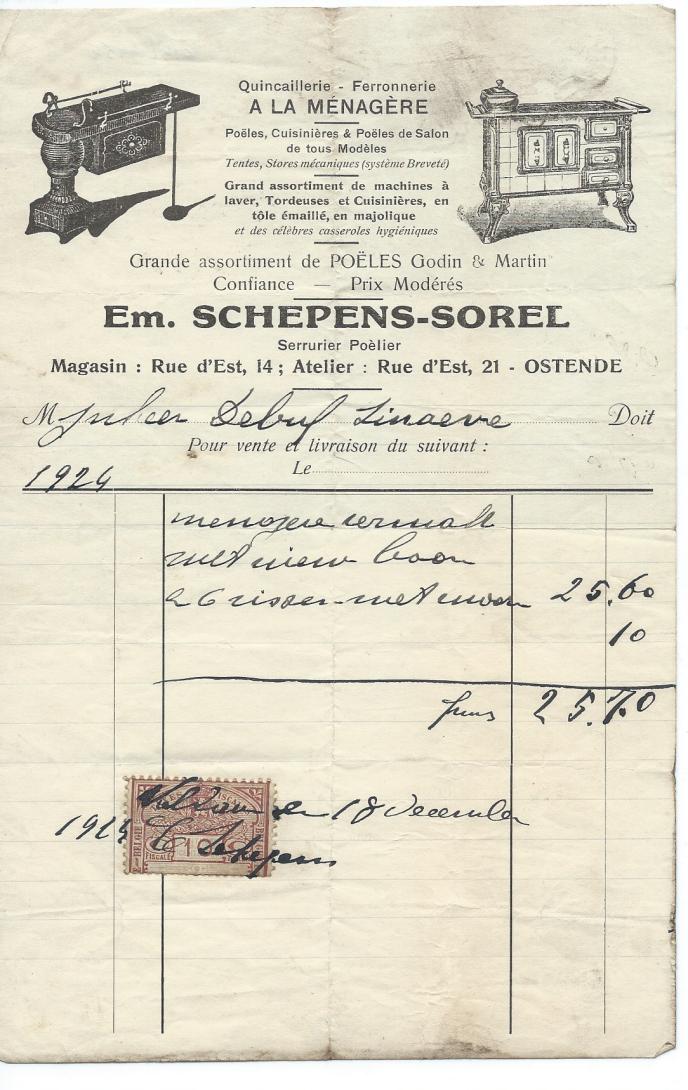 Quincaillerie - Ferronnerie
A LA MÉNAGÈRE
Poëles, Cuisinières & Poëles de Salon
de tous Modèles
Tentes, Stores mécaniques (système Breveté)
Grand assortiment de machines à
laver, Tordeuses et Cuisinières, en
tôle émaillé, en majolique
et des célèbres casseroles hygiéniques
Grande assortiment de POËLES Godin & Martin
Confiance — Prix Modérés
Em. SCHEPENS-SOREL
Serrurier Poèlier
Magasin : Rue d'Est, 14 ; Atelier : Rue d'Est, 21 - OSTENDE
M Doit
Pour vente et livraison du suivant :
Le
1924
met
met 25.60
10
25.70
18 December
Schepens
FISCALE